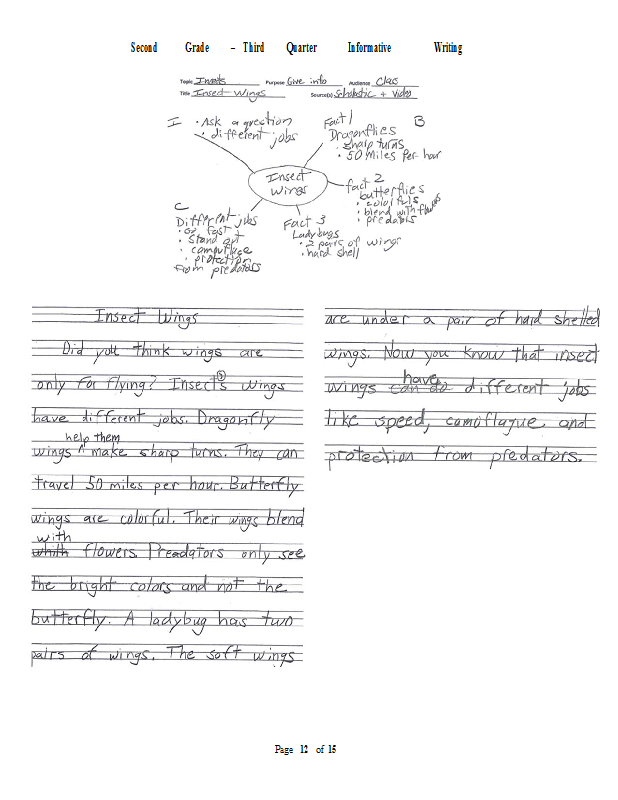 Second Grade – Third Quarter Informative Writing
Topic Insects Purpose Give info Audience Class
Title Insect Wings Source(s) Scholastic + Video
I • Ask a question
• different jobs
Fact 1
Dragonflies
• sharp turns
• 50 miles per hour
B
Insect
Wings
fact 2
butterflies
• colorfuls
• blend with flowers
• predators
C
Different jobs
• go fast
• stand out
• camouflage
• protection
from predators
Fact 3
Ladybugs
• 2 pairs of wings
• hard shell
Insect Wings
Did you think wings are
only for flying? Insects wings
have different jobs. Dragonfly
help them
wings ^ make sharp turns. They can
travel 50 miles per hour. Butterfly
wings are colorful. Their wings blend
with
whith flowers. Preadators only see
the bright colors and not the
butterfly. A ladybug has two
pairs of wings. The soft wings
are under a pair of hard shelled
wings. Now you know that insect
have
wings can do different jobs
like speed, camoflague and
protection from predators.
Page 12 of 15